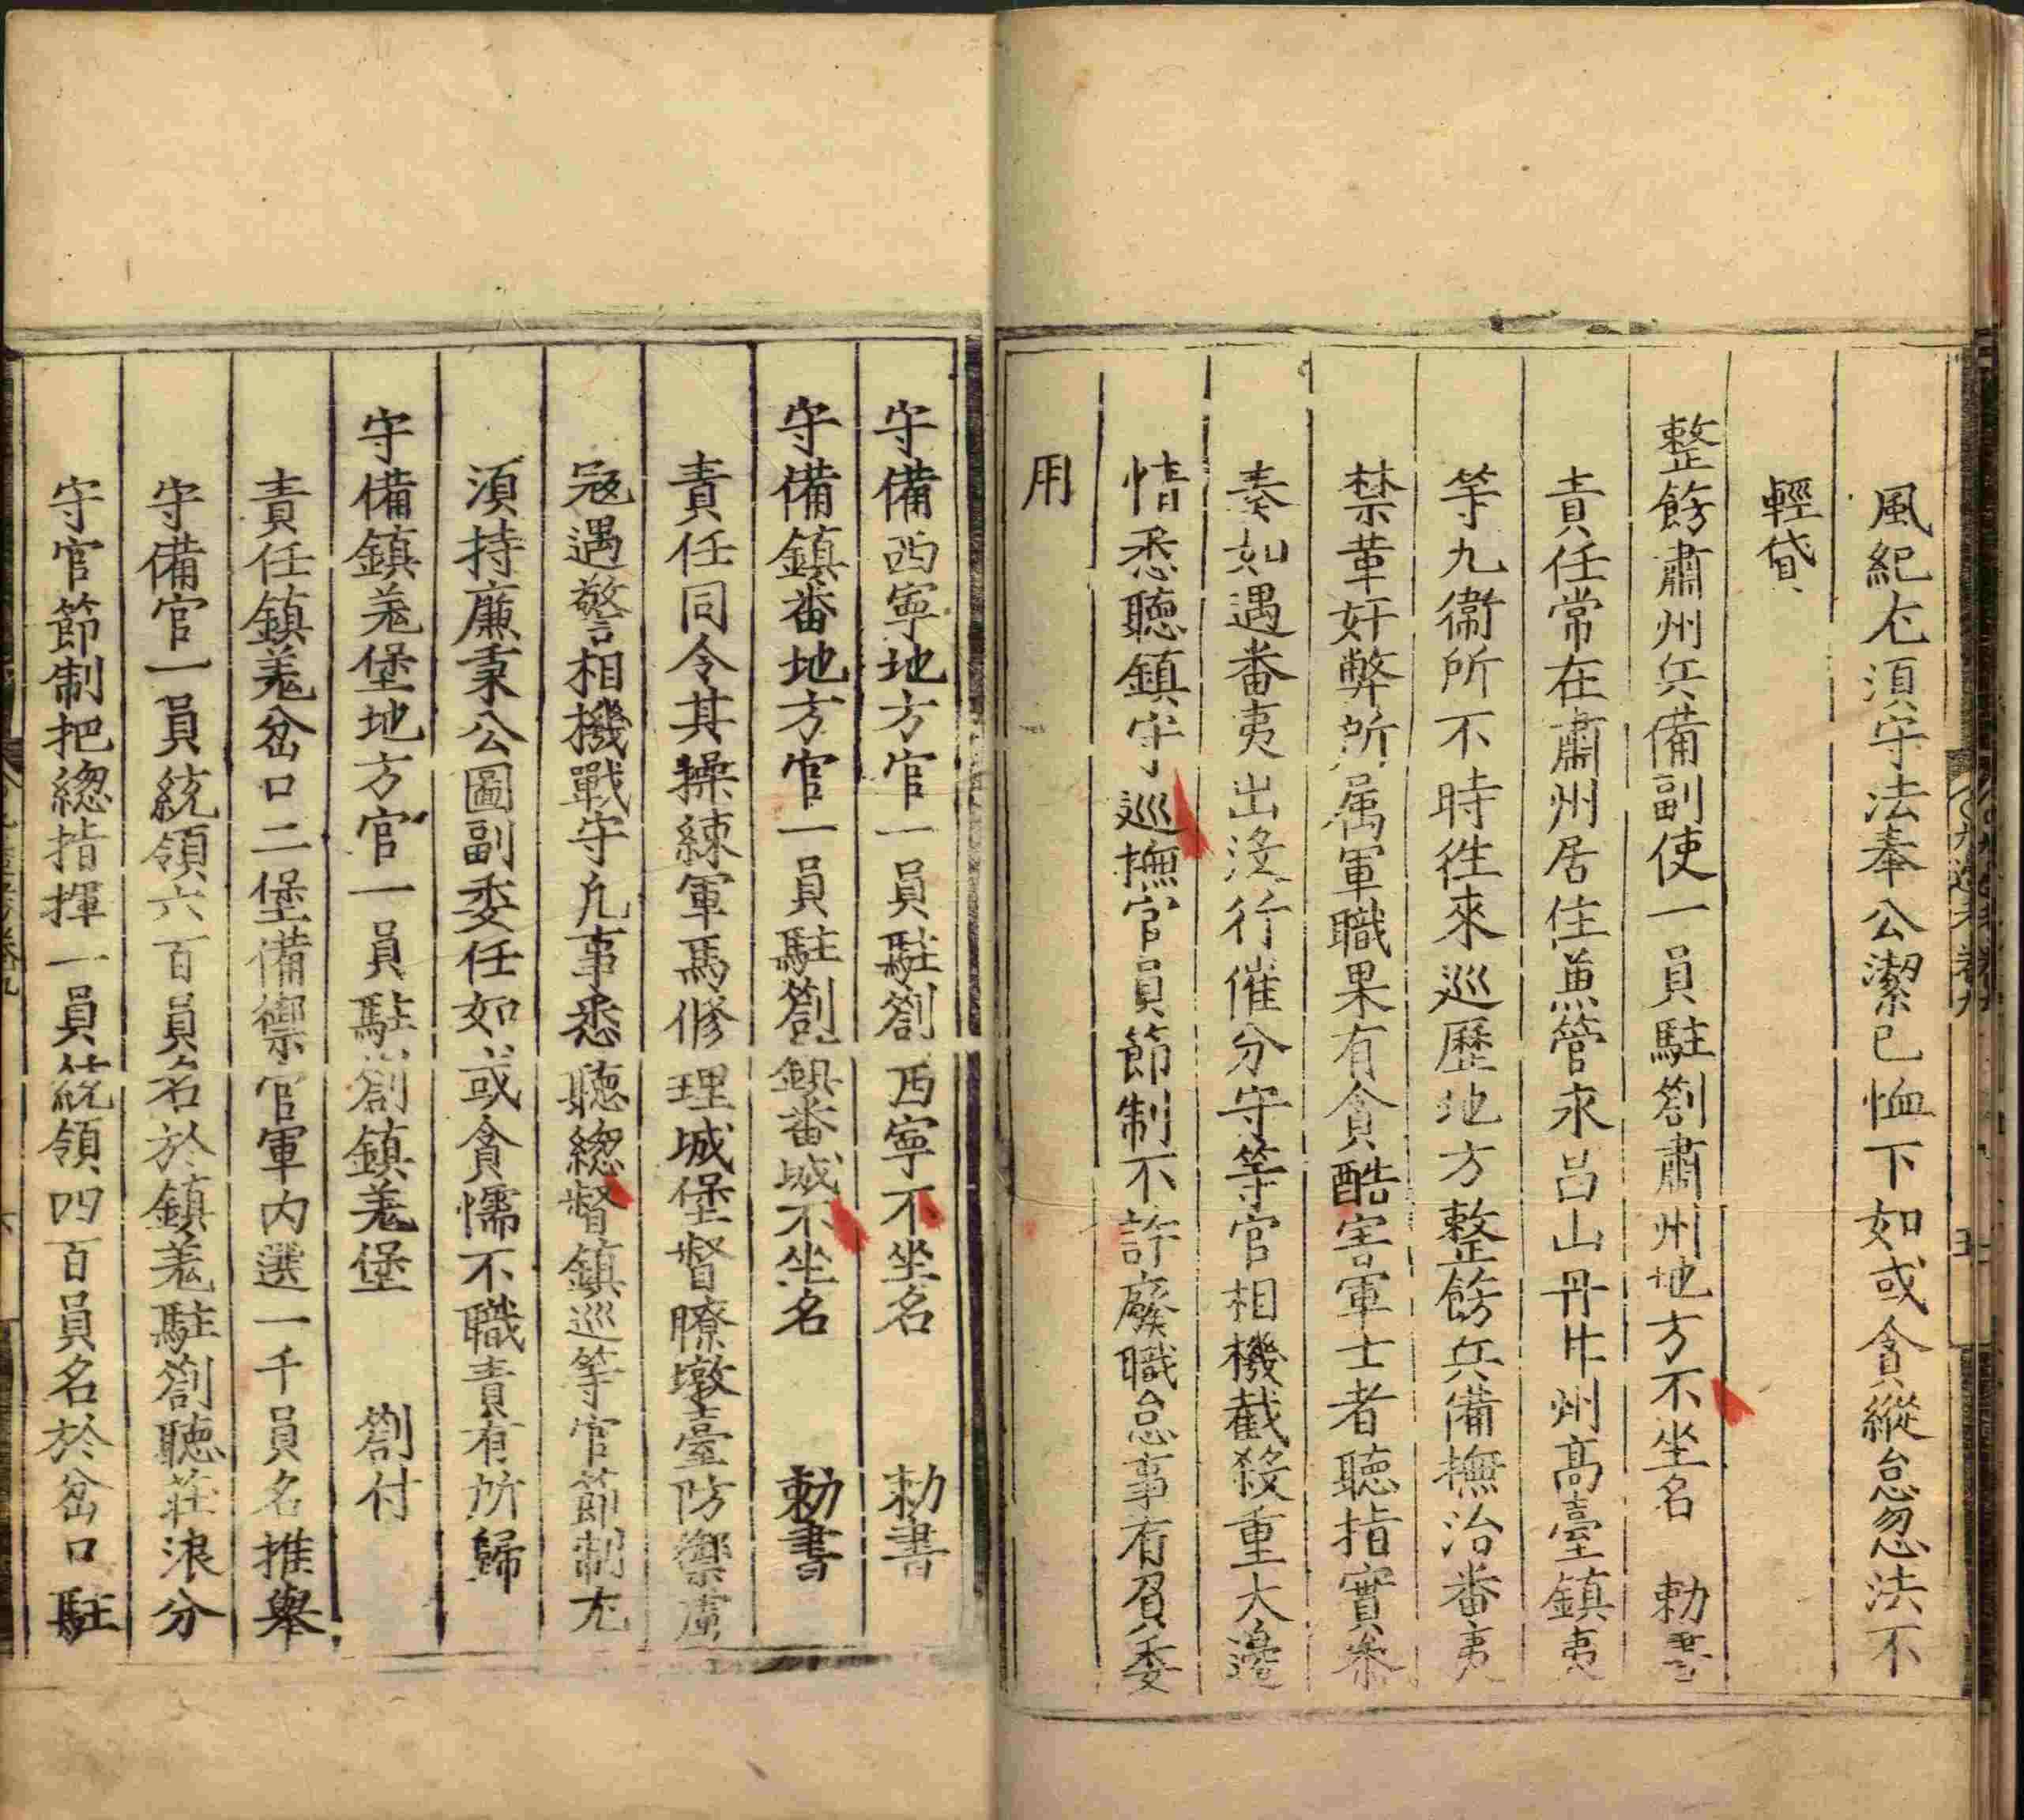 風紀尢須守法奉公潔已恤下如或貪縱怠忽法不
輕貸
整飭肅州兵備副使一員駐劄肅州地方不坐名 勅書
責任常在肅州居住兼管永昌山丹甘州高臺鎮夷
等九衞所不時徃來巡歷地方整飭兵備撫治番夷
禁革奸弊所属軍職果有貪酷害軍士者聽指實叅
奏如遇番夷出沒行催分守等官相機截殺重大邊
情悉聽鎮守巡撫官員節制不許廢職怠事有負委
用
守備西寧地方官一員駐劄西寧不坐名 勅書
守備鎮番地方官一員駐劄鎮番城不坐名 勅書
責任同令其操練軍馬修理城堡督瞭墩臺防禦虜
冦遇警相機戰守凢事悉聽總督鎮巡等官節制尢
須持廉秉公圖副委任如或貪懦不職責有所歸
守備鎮羌堡地方官一員駐劄鎮羌堡 劄付
責任鎮羌岔口二堡備禦官軍内選一千員名推舉
守備官一員統領六百員名於鎮羌駐劄聽莊浪分
守官節制把總指揮一員統領四百員名於岔口駐